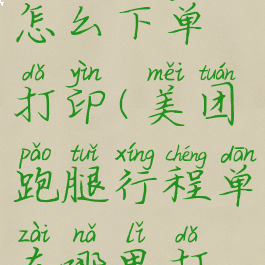 怎么下单
dǎ yìn měi tuán
打印(美团
pǎo tuǐ xíng chéng dān
跑腿行程单
zài nǎ lǐ dǎ
在哪里打